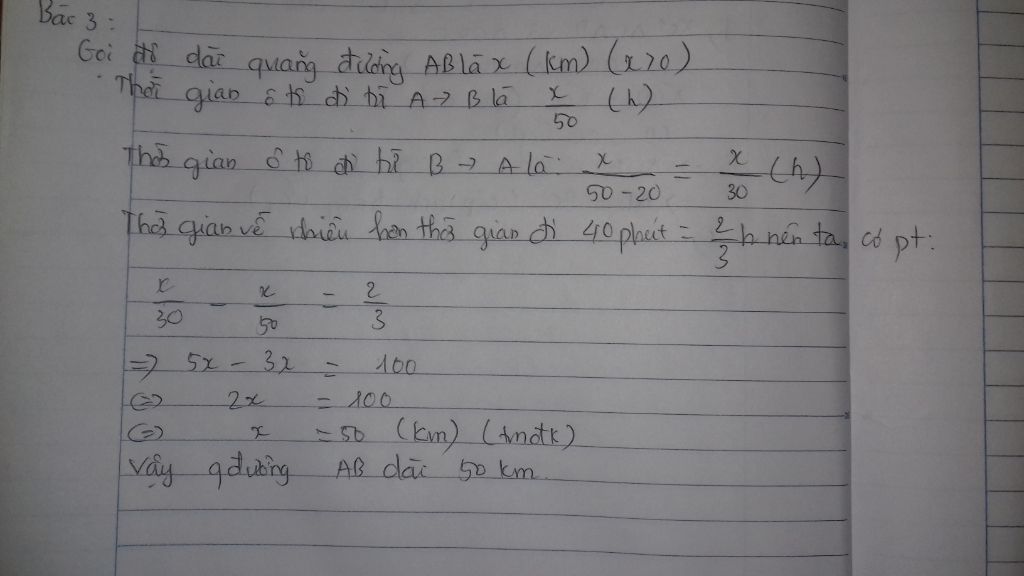 Bài 3:
Gọi độ dài quãng đường AB là x (km) (x>0)
Thời gian ô tô đi từ A → B là x/50 (h)
Thời gian ô tô đi từ B → A là: x/(50-20) = x/30 (h)
Thời gian về nhiều hơn thời gian đi 40 phút = 2/3 h nên ta có pt:
x/30 - x/50 = 2/3
=> 5x - 3x = 100
<=> 2x = 100
<=> x = 50 (km) (tmđk)
Vậy qđường AB dài 50 km.